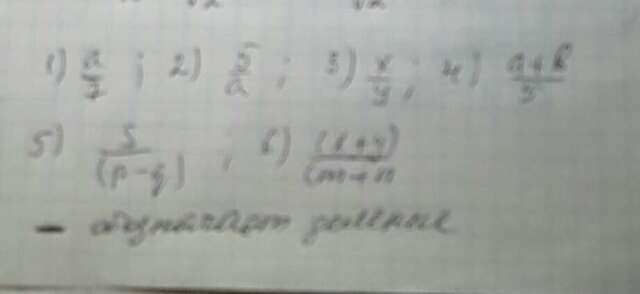 1) a/7 ; 2) 5/a ; 3) x/y ; 4) a+b/5
5) 5/(p-q) ; 6) (x+y)/(m+n
— обозначает деление